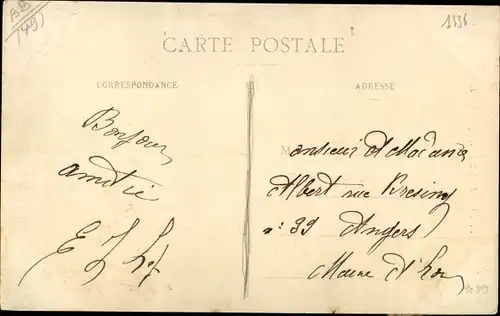 BB
(49)
1336
CARTE POSTALE
CORRESPONDANCE
ADRESSE
Bonjour
amitié
Monsieur A
Albert rue Bresigny
n: 39 Angers
Maine et Loire